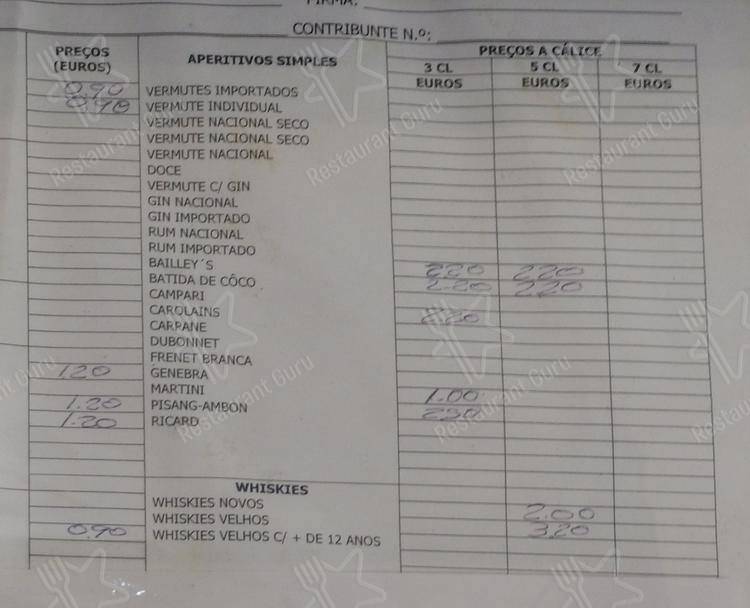 FIRMA:
CONTRIBUNTE N.º:
PREÇOS (EUROS) APERITIVOS SIMPLES PREÇOS A CÁLICE
3 CL 5 CL 7 CL
EUROS EUROS EUROS
0.90 VERMUTES IMPORTADOS
0.90 VERMUTE INDIVIDUAL
VERMUTE NACIONAL SECO
VERMUTE NACIONAL SECO
VERMUTE NACIONAL
DOCE
VERMUTE C/ GIN
GIN NACIONAL
GIN IMPORTADO
RUM NACIONAL
RUM IMPORTADO
BAILLEY´S 220 220
BATIDA DE CÔCO 2.20 220
CAMPARI
CAROLAINS 220
CARPANE
DUBONNET
FRENET BRANCA
120 GENEBRA
MARTINI 1.00
1.20 PISANG-AMBON 250
1.20 RICARD
WHISKIES
WHISKIES NOVOS
WHISKIES VELHOS 2.00
0.90 WHISKIES VELHOS C/ + DE 12 ANOS 320
Restaurant Guru
Restaurant Guru
Restaurant Guru
Restaurant Guru